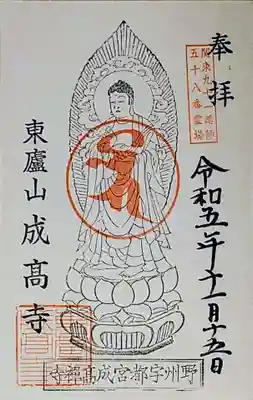 奉拝
関東九十一薬師
五十八番霊場
令和五年十一月十五日
東廬山成髙寺
野州宇都宮成髙禪寺